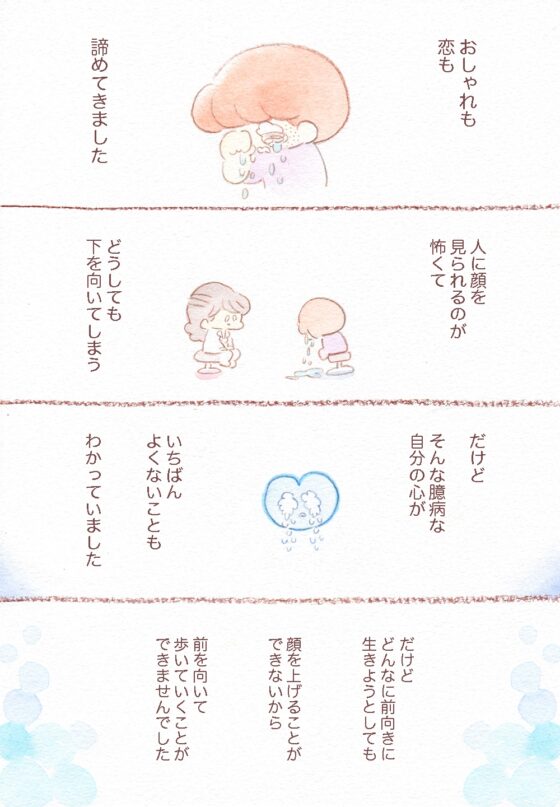 おしゃれも
恋も
諦めてきました
人に顔を
見られるのが
怖くて
どうしても
下を向いてしまう
だけど
そんな臆病な
自分の心が
いちばん
よくないことも
わかっていました
だけど
どんなに前向きに
生きようとしても
顔を上げることが
できないから
前を向いて
歩いていくことが
できませんでした